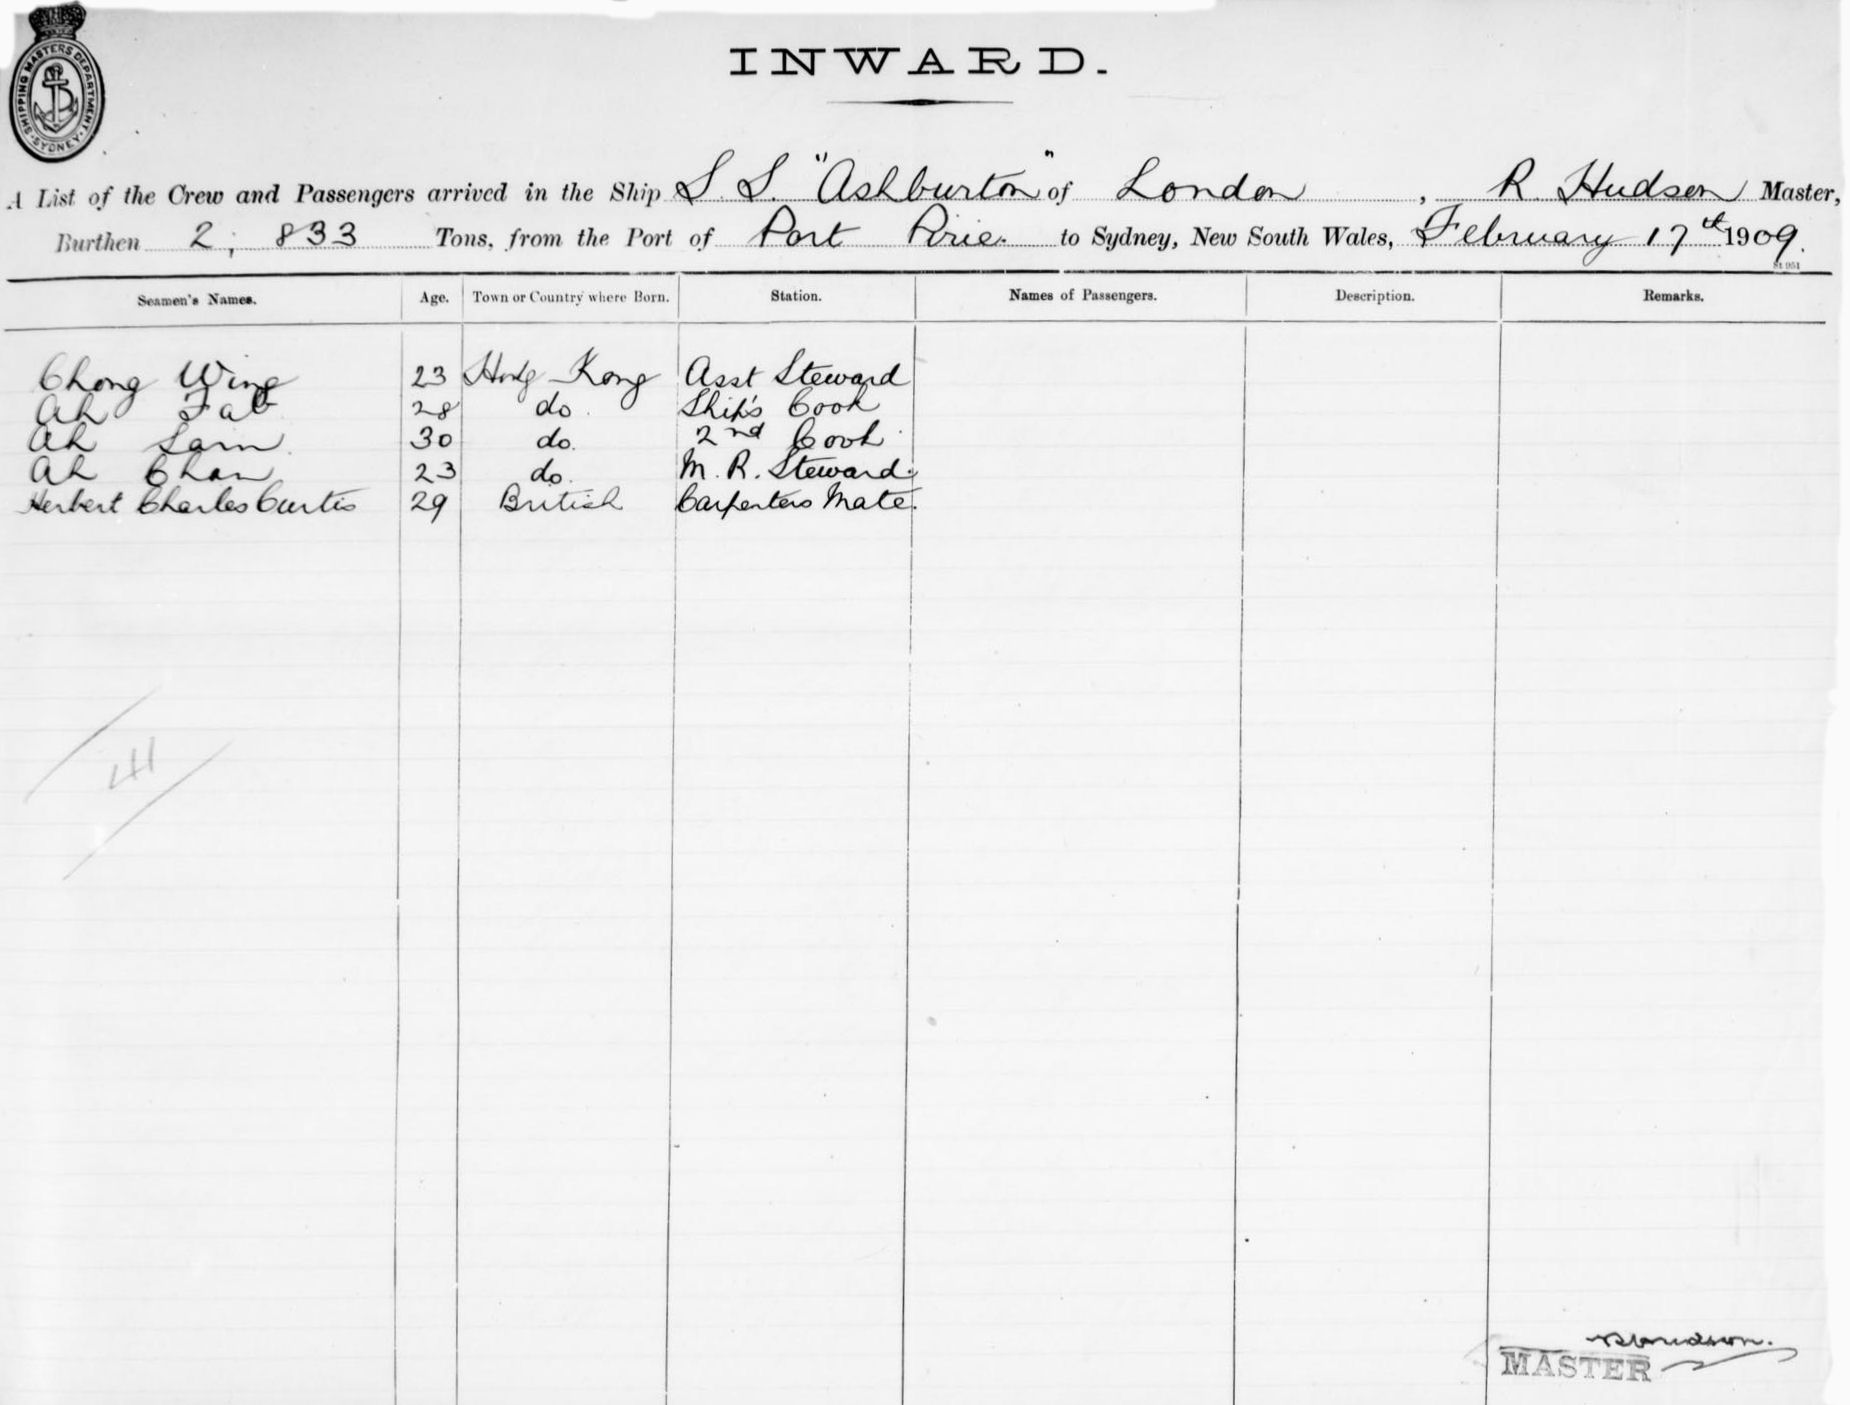 SHIPPING MASTERS DEPARTMENT. SYDNEY
INWARD.
A List of the Crew and Passengers arrived in the Ship S.S. "Ashburton" of London, R. Hudson Master,
Burthen 2,833 Tons, from the Port of Port Pirie. to Sydney, New South Wales, February 17th 1909.
St 951
Seamen's Names. Age. Town or Country where Born. Station. Names of Passengers. Description. Remarks.
Chong Wing 23 Hong Kong Asst Steward
Ah Fat 28 do. Ship's Cook
Ah Sam 30 do. 2nd Cook
Ah Chan 23 do. M. R. Steward.
Herbert Charles Curtis 29 British Carpenters Mate.
41
R Hudson.
MASTER